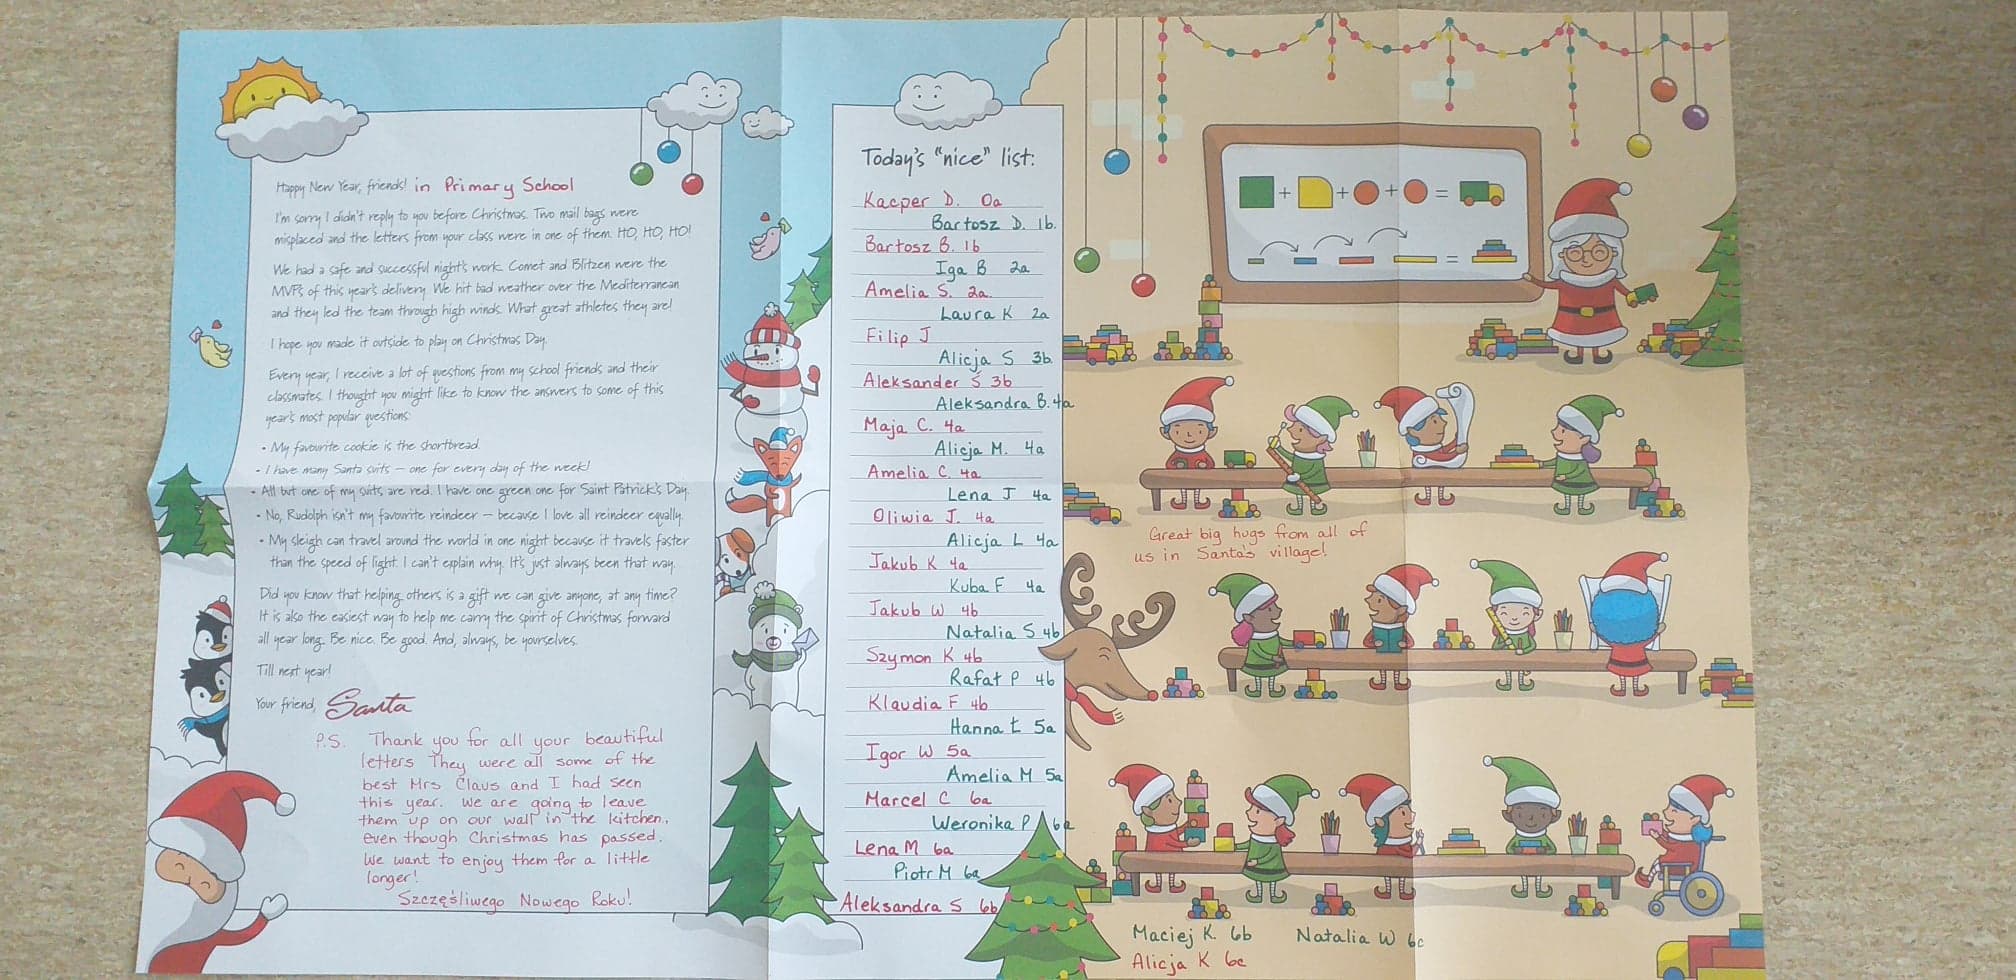 Happy New Year, friends! in Primary School
I'm sorry I didn't reply to you before Christmas. Two mail bags were
misplaced and the letters from your class were in one of them. HO, HO, HO!
We had a safe and successful night's work. Comet and Blitzen were the
MVPs of this year's delivery. We hit bad weather over the Mediterranean
and they led the team through high winds. What great athletes they are!
I hope you made it outside to play on Christmas Day.
Every year, I receive a lot of questions from my school friends and their
classmates. I thought you might like to know the answers to some of this
year's most popular questions:
• My favourite cookie is the shortbread.
• I have many Santa suits – one for every day of the week!
• All but one of my suits are red. I have one green one for Saint Patrick's Day.
• No, Rudolph isn't my favourite reindeer – because I love all reindeer equally.
• My sleigh can travel around the world in one night because it travels faster
than the speed of light. I can't explain why. It's just always been that way.
Did you know that helping others is a gift we can give anyone, at any time?
It is also the easiest way to help me carry the spirit of Christmas forward
all year long. Be nice. Be good. And, always, be yourselves.
Till next year!
Your friend, Santa
P.S. Thank you for all your beautiful
letters They were all some of the
best Mrs Claus and I had seen
this year. We are going to leave
them up on our wall in the kitchen,
even though Christmas has passed.
We want to enjoy them for a little
longer!
Szczęśliwego Nowego Roku!
Today's "nice" list:
Kacper D. 0a
Bartosz D. 1b.
Bartosz B. 1b
Iga B 2a
Amelia S. 2a.
Laura K 2a
Filip J
Alicja S 3b
Aleksander Ś 3b
Aleksandra B. 4a
Maja C. 4a
Alicja M. 4a
Amelia C. 4a
Lena J 4a
Oliwia J. 4a
Alicja L 4a
Jakub K 4a
Kuba F 4a
Jakub W 4b
Natalia S 4b
Szymon K 4b
Rafat P 4b
Klaudia F 4b
Hanna Ł 5a
Igor W 5a
Amelia M 5a
Marcel C 6a
Weronika P 6a
Lena M 6a
Piotr M 6a
Aleksandra S 6b
Great big hugs from all of
us in Santa's village!
Maciej K. 6b Natalia W 6c
Alicja K 6c